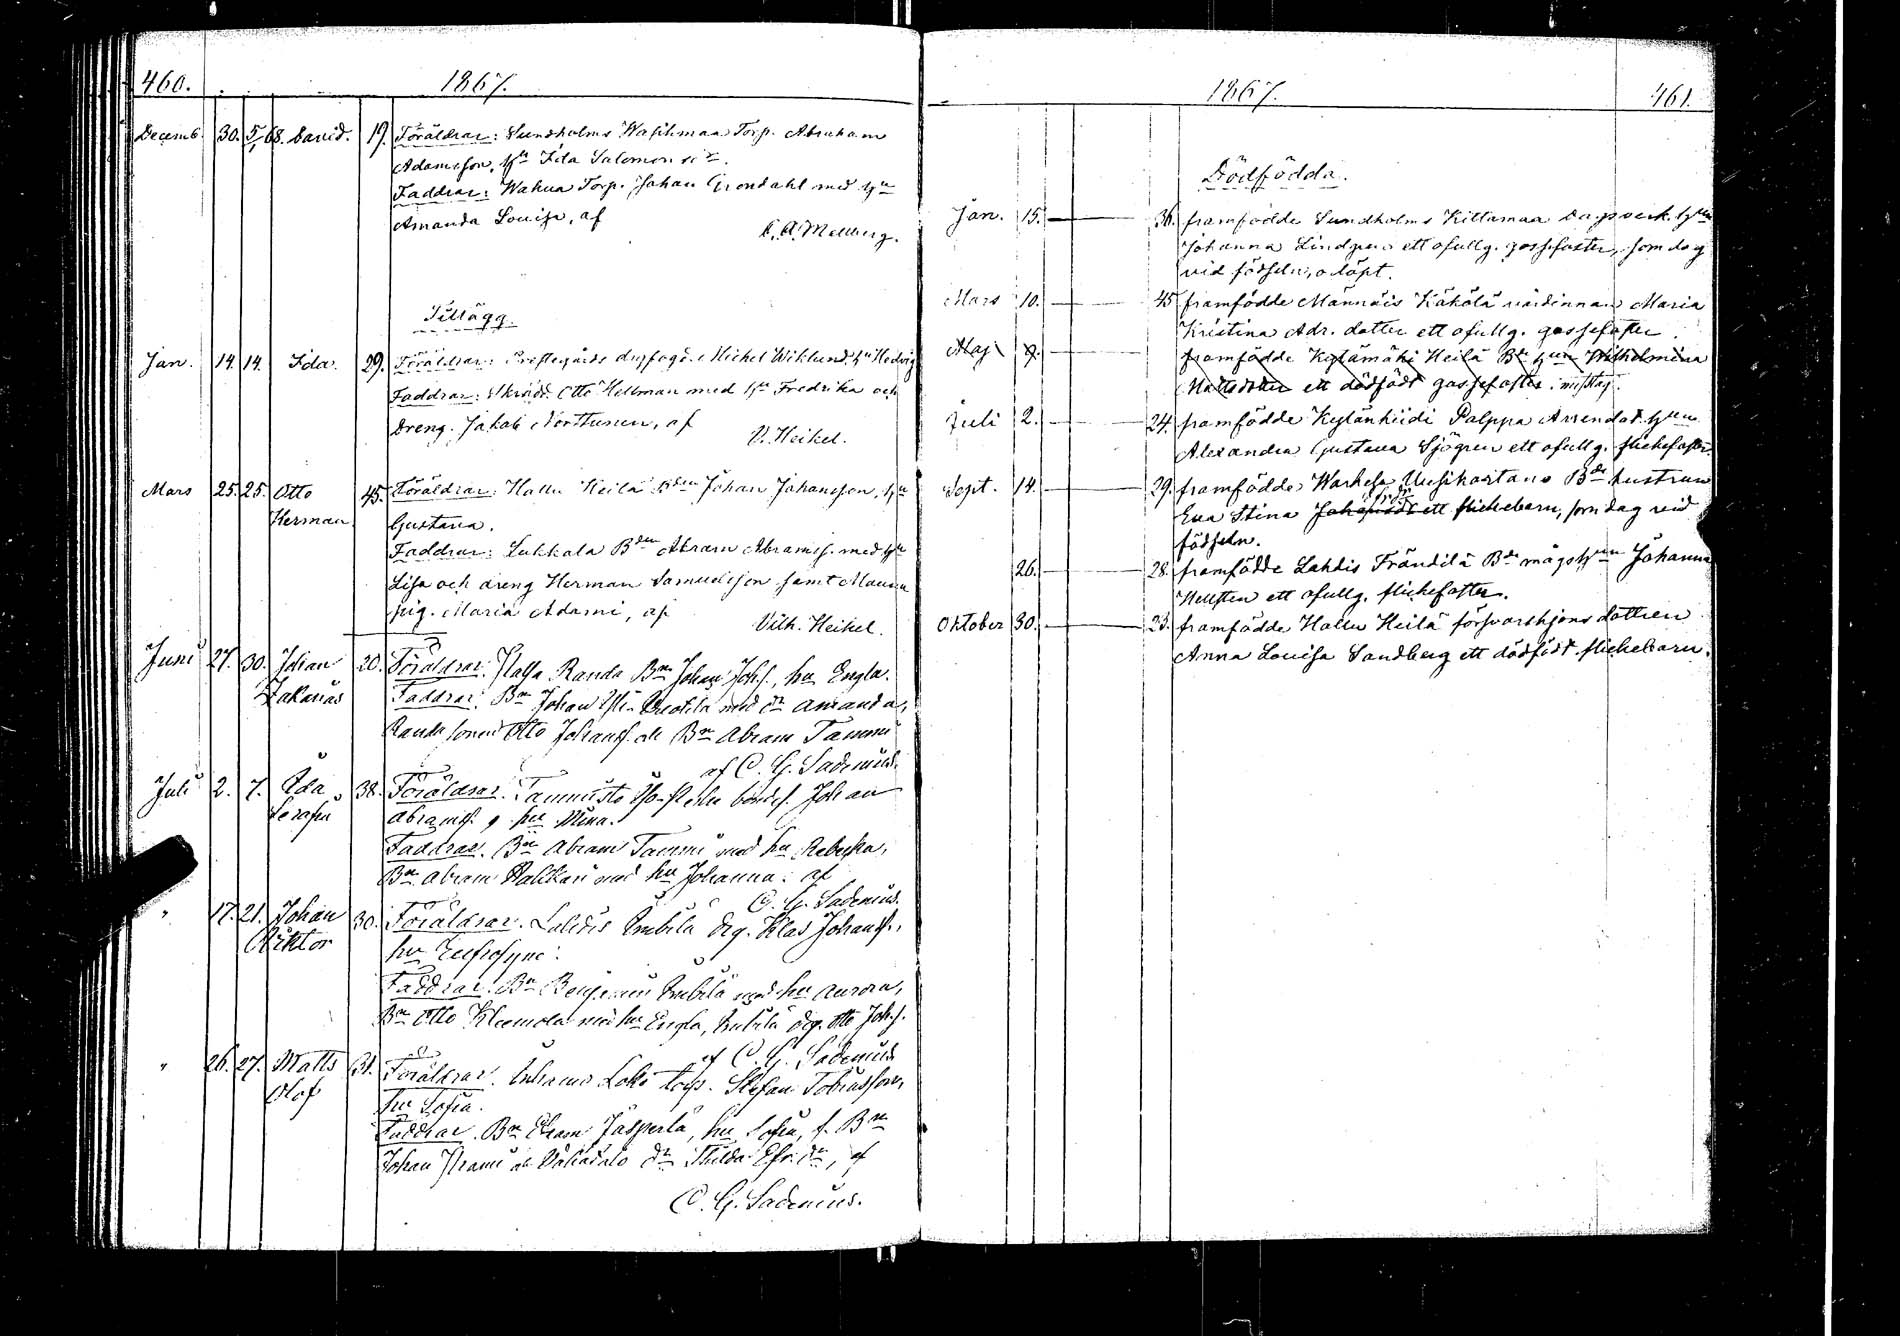 460. 1867.
Decemb. 30. 5/1 68. David. 19. Föräldrar: Sundholms Torp. Abraham
Adamsson, hu Ida Salomons dr.
Faddrar: Wahua Torp. Johan Grondahl med hu
Amanda Lovisa, af
Mellberg.
Tillägg.
Jan. 14. 14. Ida. 29. Föräldrar: Prestegårds Michel Wiklund, hu Hedvig
Faddrar: Skrädd. Otto Hellman med hu Fredrika och
Dreng. Jakob Norttunen, af
V. Heikel.
Mars 25. 25. Otto 45. Föräldrar: Hallu Heilä Bden Johan Johansson, hu
Herman Gustava.
Faddrar: Lukkala Bden Abram Abramss. med hu
Lisa och dreng Herman Samuelsson samt
pig. Maria Adami, af
Vilh. Heikel.
Juni 27. 30. Johan 20. Föräldrar. Randa Bn Johan Joh.s., hu Engla.
Zakarias Faddrar. Bn Johan med dr Amanda,
Randa sonen Otto Johanss. Bn Abram Tammi
af C. G. Sadenius.
Juli 2. 7. Ida 38. Föräldrar. Tammisto bondes. Johan
Serafia Abramss. hu Mina.
Faddrar. Bn Abram Tammi med hu Rebecka,
Bn Abram med hu Johanna. af
C. G. Sadenius.
" 17. 21. Johan 30. Föräldrar. Lahdis Anttila drg. Klas Johanss.,
Viktor hu Eufrosyne.
Faddrar. Bn Benjamin med hu Aurora,
Bn Otto Kleemola med hu Engla, drg. Otto Joh.s.
af C. G. Sadenius
" 26. 27. Matts 31. Föräldrar. torp. Stefan Tobiasson,
Olof hu Sofia.
Faddrar. Bn Jasperla, hu Sofia, f. Bn
Johan dr Efr. dr, af
C. G. Sadenius.
1867. 461.
Dödfödda.
Jan. 15. 36. framfödde Sundholms Kittamaa Dagsverk. hun
Johanna Lindgren ett ofullg. gossefoster, som dog
vid födseln, odöpt.
Mars 10. 45 framfödde Männäis Käkölä värdinnan Maria
Kristina Adr. dotter ett ofullg. gossefoster
Maj 9. framfödde Kylämäki Heilä Bde hun Wilhelmina
Mattsdotter ett dödfödt gossefoster. misstag.
Juli 2. 24. framfödde Kylänhiidi Palppa Arrendat. hun
Alexandra Gustava Sjögren ett ofullg. flickefoster.
Sept. 14. 29. framfödde Warhela Uusikartano Bde hustrun
Eva Stina ett flickebarn, som dog vid
födseln.
26. 28. framfödde Lahdis Frändilä Bde mågs hun Johanna
Hellsten ett ofullg. flickefoster.
Oktober 30. 23. framfödde Hallu Heilä försvarshjons dottren
Anna Lovisa Sandberg ett dödfödt flickebarn.